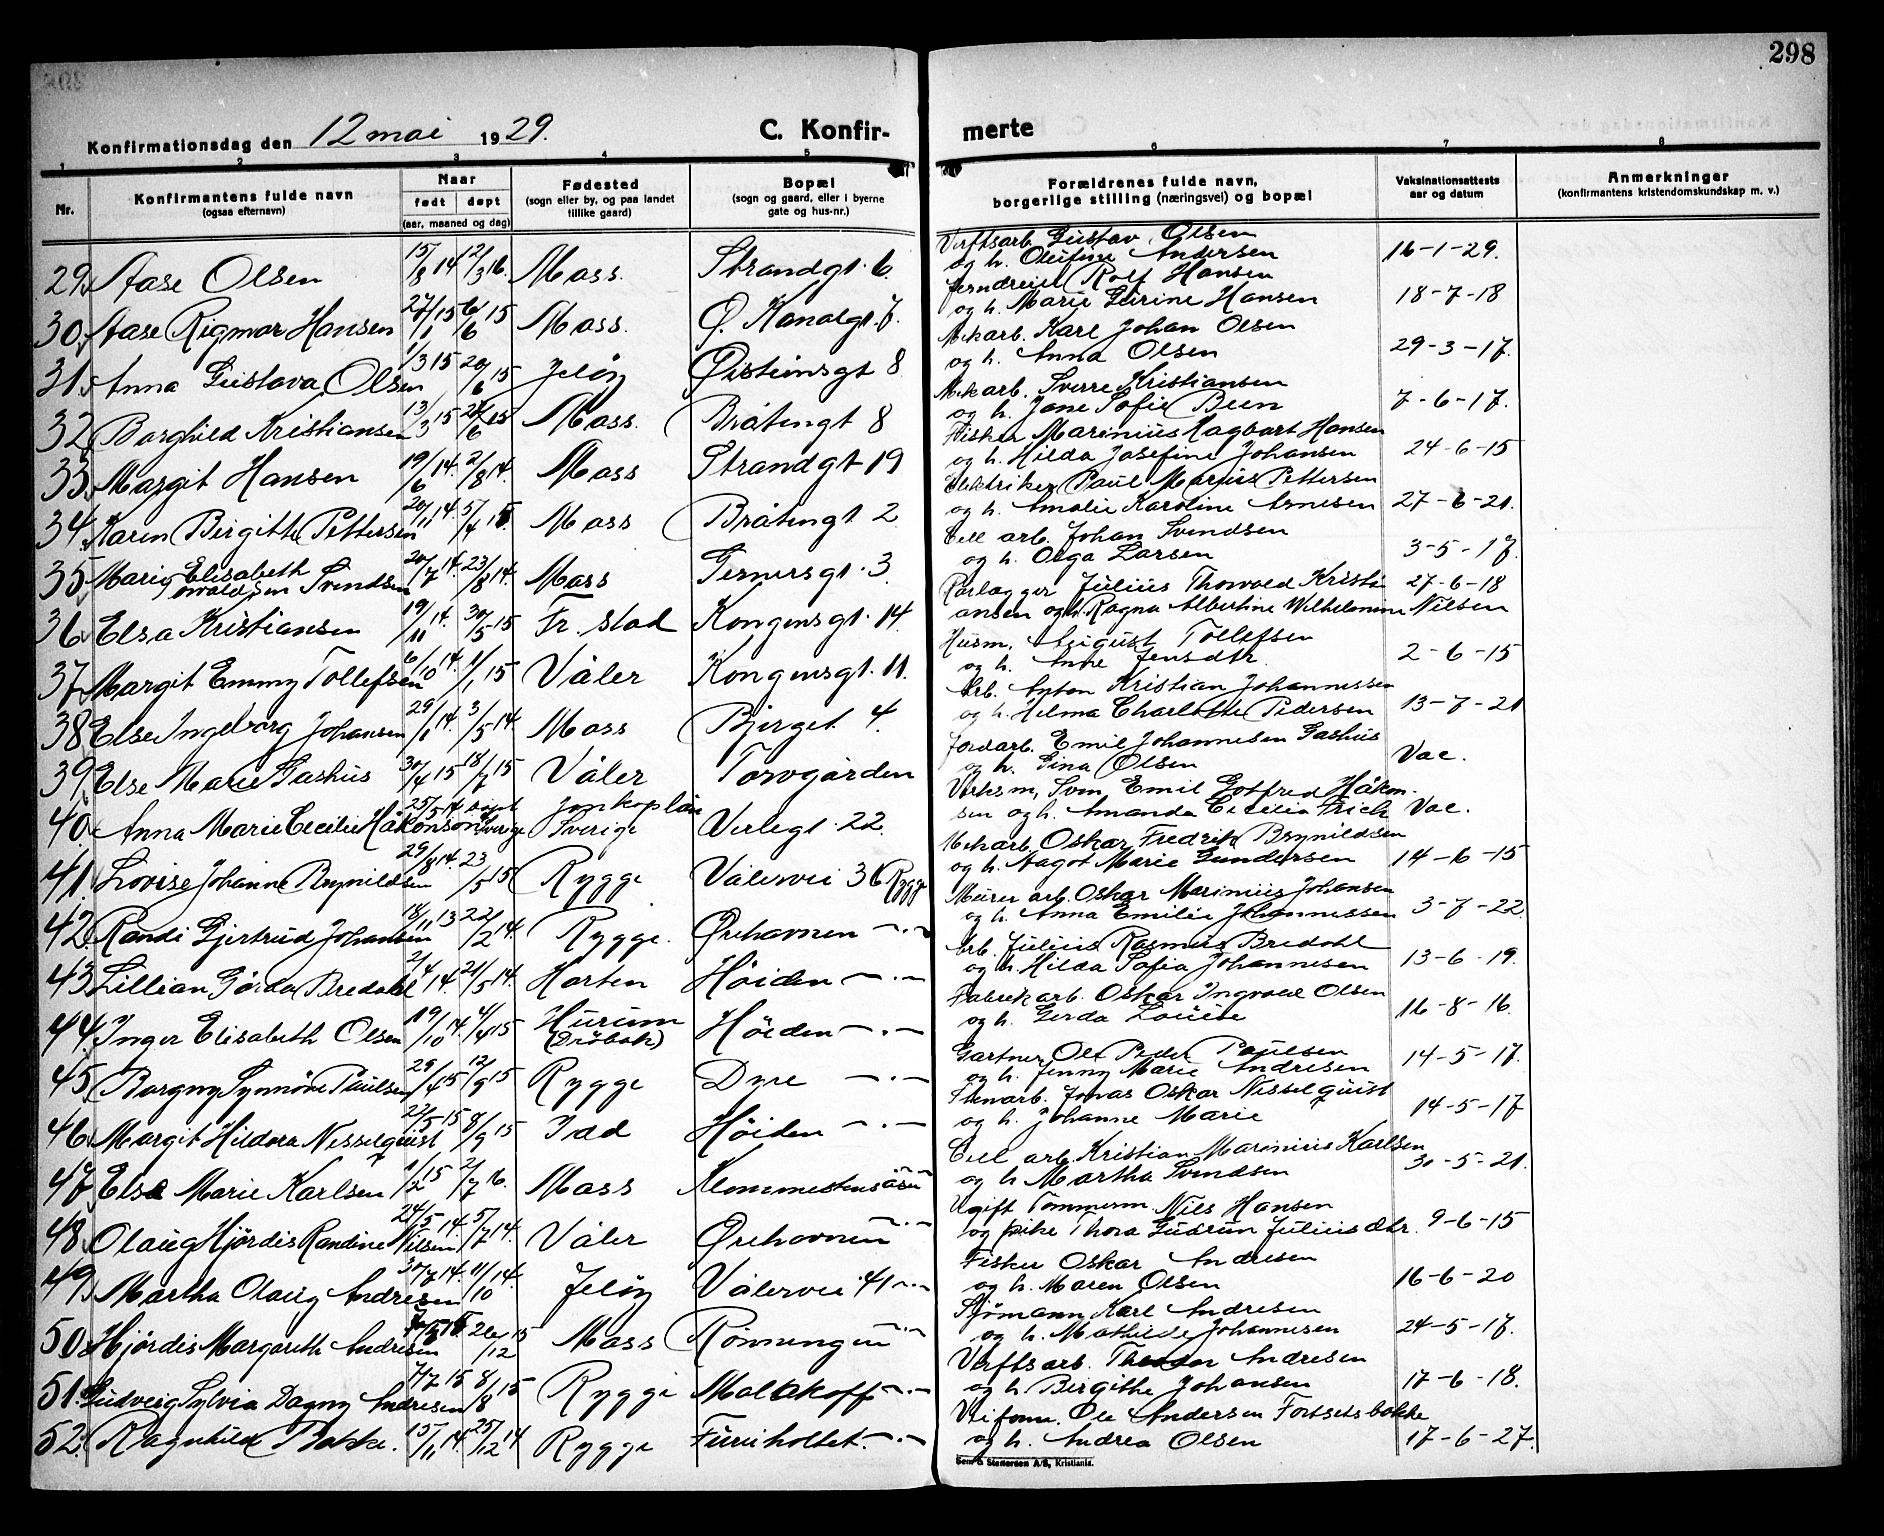 298
Konfirmationsdag den 12 mai 1929.
C. Konfir-
merte
1 2 3 4 5 6 7 8
Nr.
Konfirmantens fulde navn
(ogsaa efternavn)
Naar
født døpt
(aar, maaned og dag)
Fødested
(sogn eller by, og paa landet
tillike gaard)
Bopæl
(sogn og gaard, eller i byerne
gate og hus-nr.)
Forældrenes fulde navn,
borgerlige stilling (næringsvei) og bopæl
Vaksinationsattests
aar og datum
Anmerkninger
(konfirmantens kristendomskundskap m. v.)
29. Aase Olsen 15/8 14 12/3 16. Moss. Strandgt. 6.
Verftsarb. Gustav Olsen
og h. Olufine Andersen 16-1-29.
30. Aase Rigmor Hansen 27/1 15 6/6 15 Moss. Ø. Kanalgt. 7.
Jerndreier Rolf Hansen
og h. Marie Gurine Hansen 18-7-18
31. Anna Gustava Olsen 1/3 15 20/6 15 Jeløy Øistinsgt 8.
Mek arb. Karl Johan Olsen
og h. Anna Olsen 29-3-17.
32. Borghild Kristiansen 13/3 15 /6 15 Moss. Bråtengt 8
Mek arb. Sverre Kristiansen
og h. Jane Sofie Been 7-6-17.
33. Margit Hansen 19/6 14. 2/8 14. Moss Strandgt 19
Fisker Marinius Hagbart Hansen
og h. Hilda Josefine Johansen 24-6-15
34. Karen Birgitte Pettersen 20/11 14. 5/4 15. Moss Bråtengt. 2
Elektriker Paul Marius Pettersen
og h. Amalie Karoline Arnesen 27-6-21.
35. Marie Elisabeth Svendsen 20/7 14. 23/8 14. Moss Gernersgt. 3
Cell arb. Johan Svendsen
og h. Olga Larsen 3-5-17.
36. Elsa Kristiansen 19/11 14. 30/5 15 Fr. stad Kongensgt. 14.
Rørlægger Julius Thorvald Kristi
ansen og h. Ragna Albertine Wilhelmine Nilsen 27-6-18
37. Margit Emmy Tollefsen 6/10 14. 1/1 15 Våler Kongensgt. 11.
Husm. August Tollefsen
og h. Anne Jensdtr. 2-6-15
38. Else Ingeborg Johansen 29/1 14. 3/5 14. Moss Bjerget 4.
Arb. Anton Kristian Johannessen
og h. Helma Charlotte Pedersen 13-7-21
39. Else Marie Gashus 30/4 15 18/7 15 Våler Torvgården
Jordarb. Emil Johannesen Gashus
og h. Gina Olsen Vac.
40. Anna Marie Cecilie Håkonson 25/5 14 døpt Sverige Jonkoplän Sverige Verlegt. 22.
Verksm, Sven Emil Gotfred Håkon-
sen og h. Amanda Cecilia Frich Vac.
41. Lovise Johanne Brynildsen 29/8 14. 23/5 15 Rygge Vålervei 36 Rygge
Mekarb. Oskar Fredrik Brynildsen
og h. Aagot Marie Gundersen 14-6-15
42. Randi Gjertrud Johansen 18/11 13 22/2 14. Rygge. Ørehavnen —.—
Murer arb. Oskar Marinius Johansen
og h. Anna Emilie Johannessen 3-7-22.
43. Lillian Gørda Bredahl 2/4 14. 21/5 14. Horten Høiden —.—
Arb. Julius Rasmus Bredahl
og h. Hilda Sofia Johannesen 13-6-19.
44. Inger Elisabeth Olsen 19/10 14. 4/4 15 Hurum (Drøbak) Høiden —.—
Fabrikarb. Oskar Ingvald Olsen
og h. Gerda Louise 16-8-16.
45. Borgny Synnøve Paulsen 29/4 15 12/9 15 Rygge Dyre —.—
Gartner Ole Peder Paulsen
og h. Jenny Marie Andresen 14-5-17.
46. Margit Hildora Nesselquist 22/5 15 8/9 15 Idd Høiden —.—
Stenarb. Jonas Oskar Nisselquist
og h. Johanne Marie 14-5-17
47. Else Marie Karlsen 1/2 15 2/7 16. Moss
Cell arb. Kristian Marinius Karlsen
og h Martha Svendsen 30-5-21.
48. Olaug Hjørdis Randine Nilsen 24/5 14. 5/7 14. Våler Ørehavnen —.—
Ugift Tømmerm. Nils Hansen
og pike Thora Gudrun Juliusdtr. 9-6-15
49. Martha Olaug Andresen 30/7 14. 11/10 14. Jeløy Vålervei 41 —.—
Fisker Oskar Andresen
og h. Maren Olsen 16-6-20
50. Hjørdis Margareth Andresen 26/12 15 Moss Rønningen —.—
Sjømann Karl Andresen
og h. Mathilde Johannesen 24-5-17.
51. Gudveig Sylvia Dagny Andresen 7/7 15 8/8 15 Rygge Malakoff —.—
Verftsarb. Theodor Andresen
og h. Birgithe Johansen 17-6-18.
52. Ragnhild Bakke. 15/11 14. 25/12 14 Rygge Furuholtet. —.—
Veiform. Ole Andersen Fossetsbakke
og h. Andrea Olsen 17-6-27.
Sem & Stenersen A/S, Kristiania.